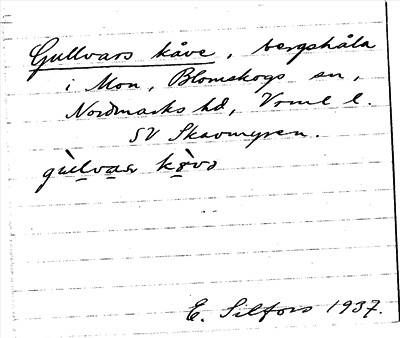 Gullvars kåve, bergshåla
i Mon, Blomskogs sn,
Nordmarks hd, Vrml l.
SV Skavmyren.
gùlvaʂ kò̱və
E. Silfors 1937.